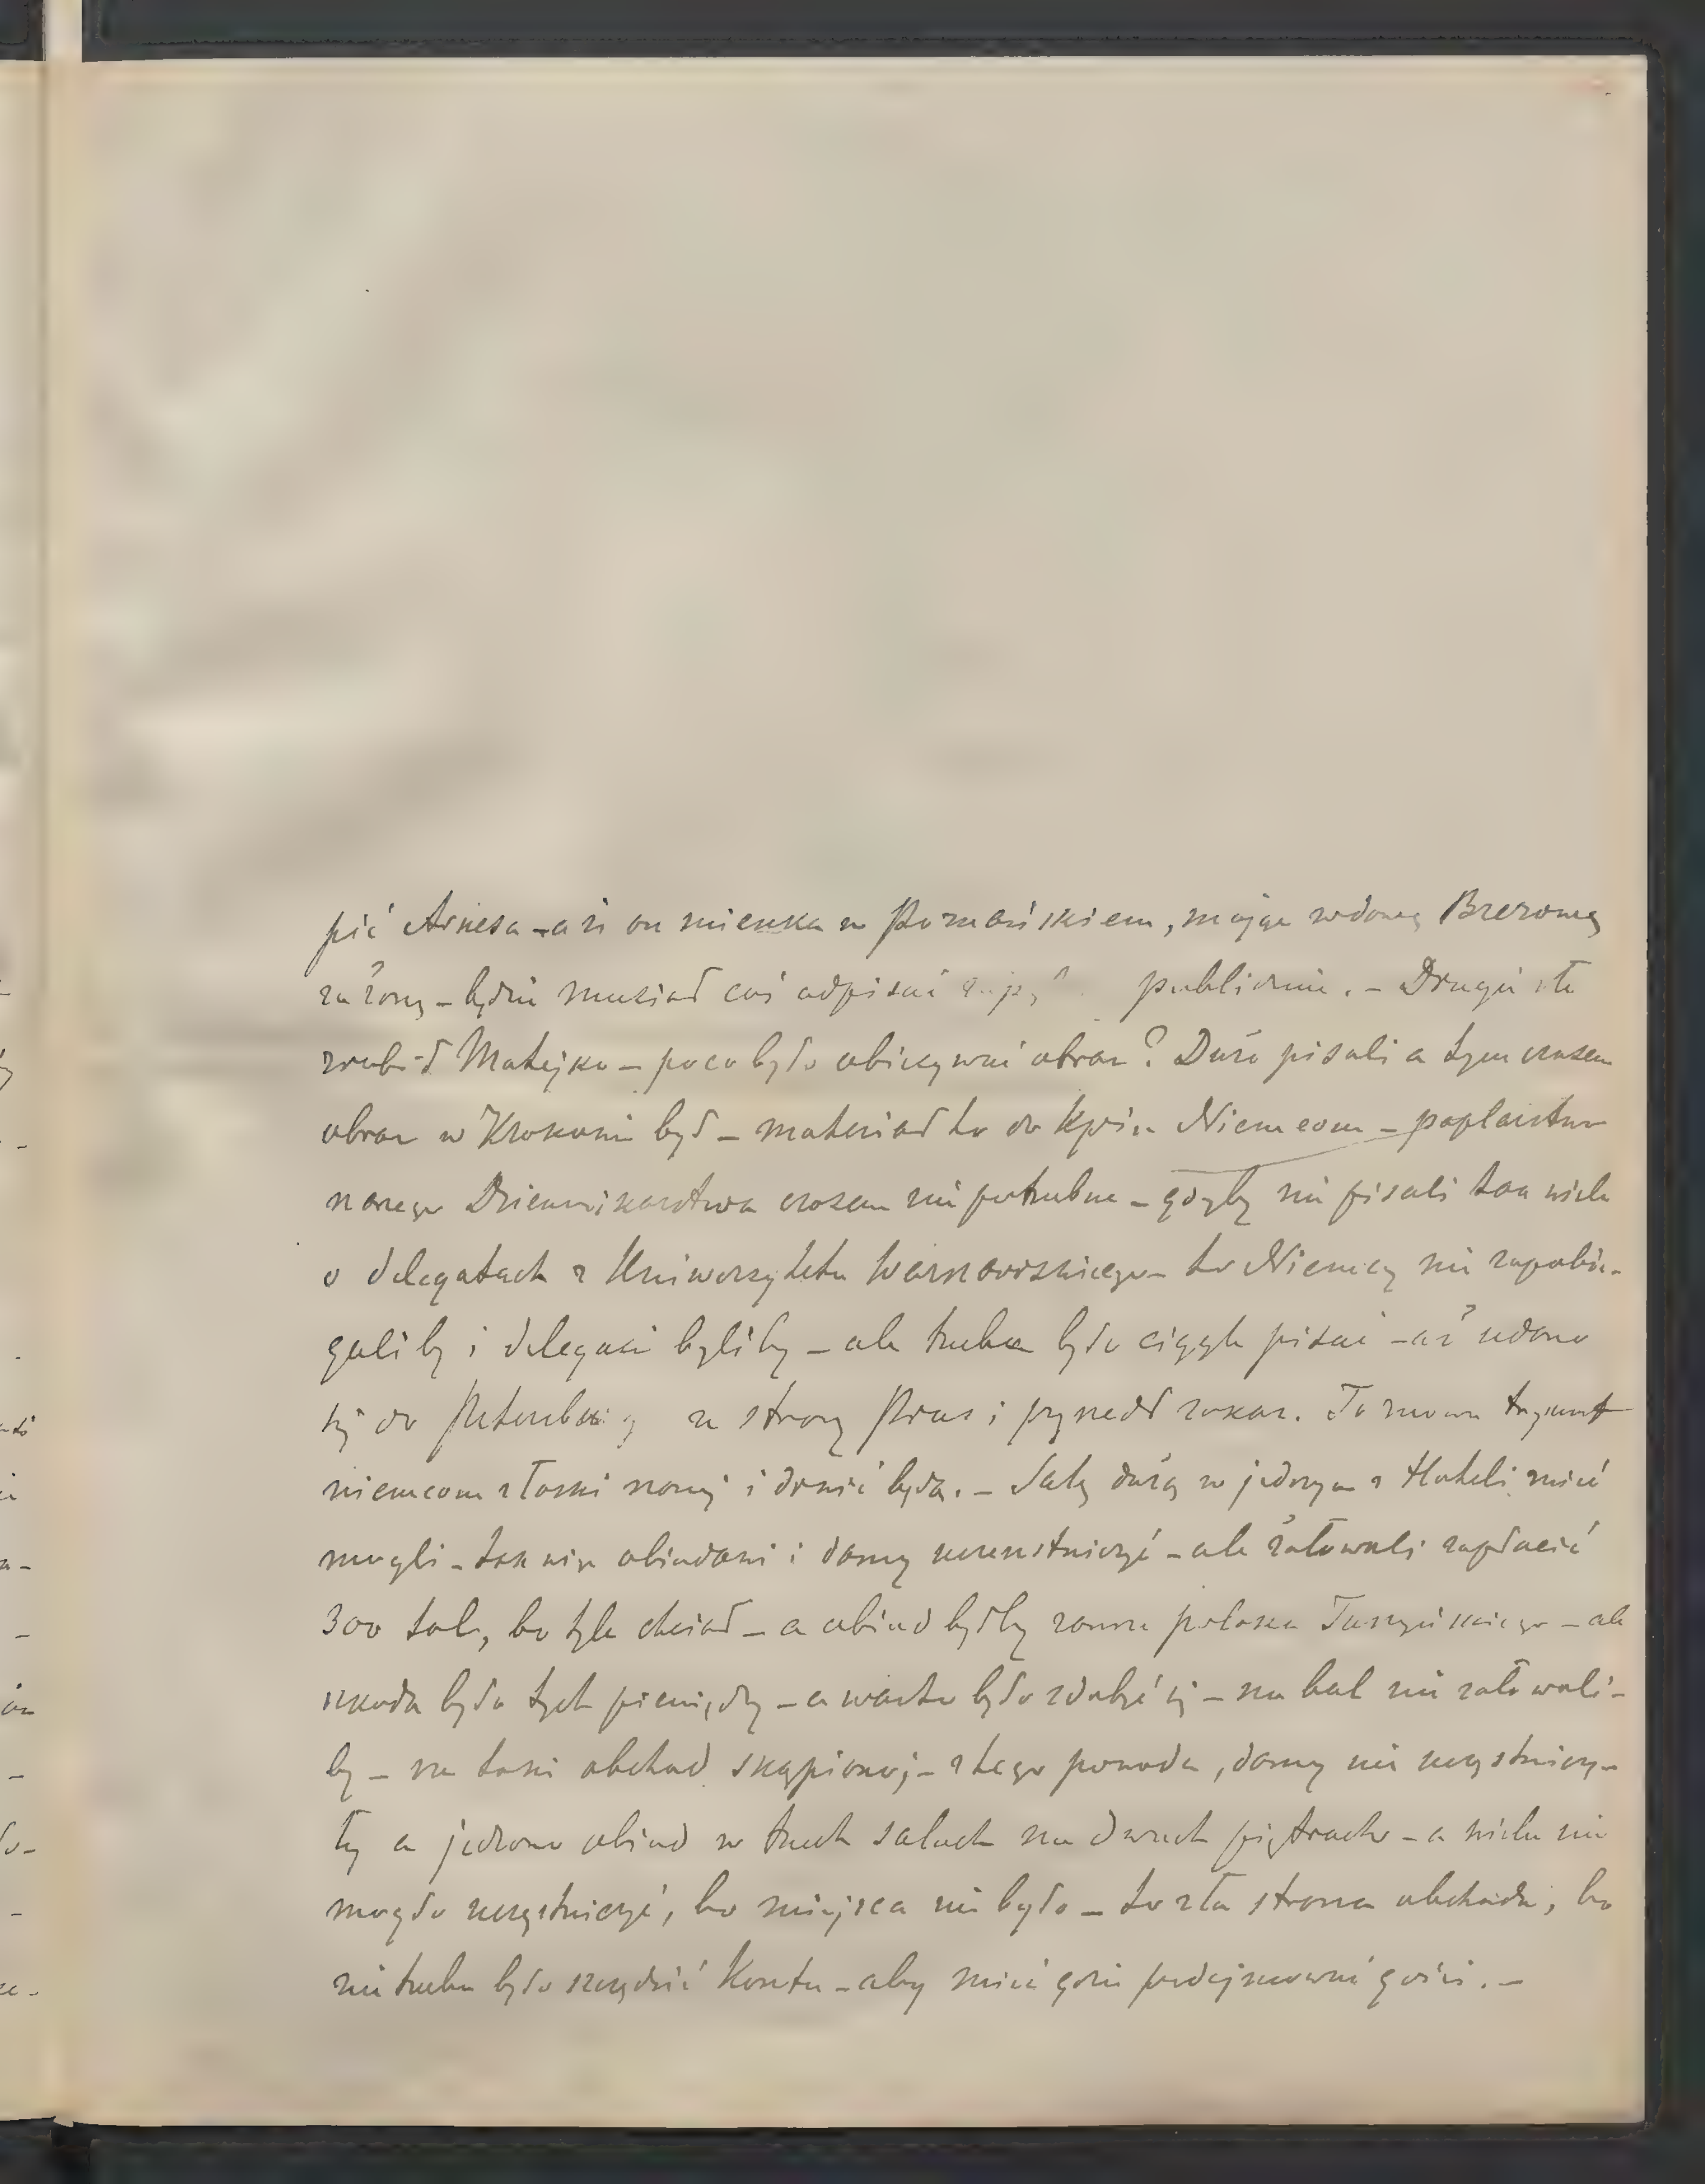 pić Arnesa - a że on mieszka w Poznańskiem, mając wdowę Brezową
za żonę - będzie musiał coś odpisać publicznie. - Drugie źle
zrobił Matejko - poco było obiecywać obraz? Dużo pisali a tymczasem
obraz w Krakowie był - materiał to do kpin Niemcom - paplarstwo
naszego Dziennikarstwa czasem nie potrzebne - gdyby nie pisali tak wiele
o delegatach z Uniwersytetu Warszawskiego - to Niemcy nie zapobie-
galiby i delegaci byliby - ale trzeba było ciągle pisać - aż udano
się do Petersburga ze strony Prus i przyszedł zakaz. To znowu tryumf
niemcom złośni nowy i drwić będą. - Salę dużą w jednym z Hoteli mieć
mogli - tak więc obiadowi i damy uczestniczyć - ale żałowali zapłacić
300 tal, bo tyle chciał - a obiad byłby zawsze polaka Turzyńskiego - ale
szkoda było tych pieniędzy - a warto było zdobyć się - na bal nie żałowali-
by - na taki obchód skąpiono j - z tego powodu, damy nie uczestniczy-
ły a jedzono obiad w trzech salach na dwuch piętrach - a wielu nie
mogło uczestniczyć, bo miejsca nie było - to zła strona obchodu, bo
nie trzeba było szczędzić kosztu - aby mieć gdzie podejmować gości. -